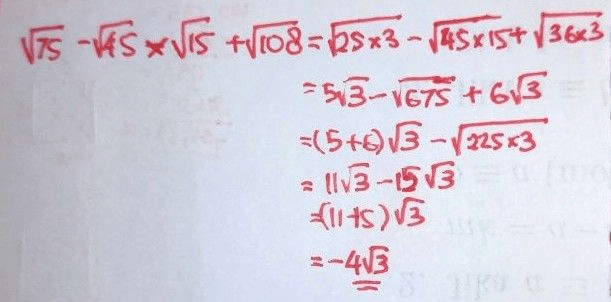 √75 - √45 × √15 + √108 = √25×3 - √45×15 + √36×3
= 5√3 - √675 + 6√3
= (5+6)√3 - √225×3
= 11√3 - 15√3
= (11-15)√3
= -4√3